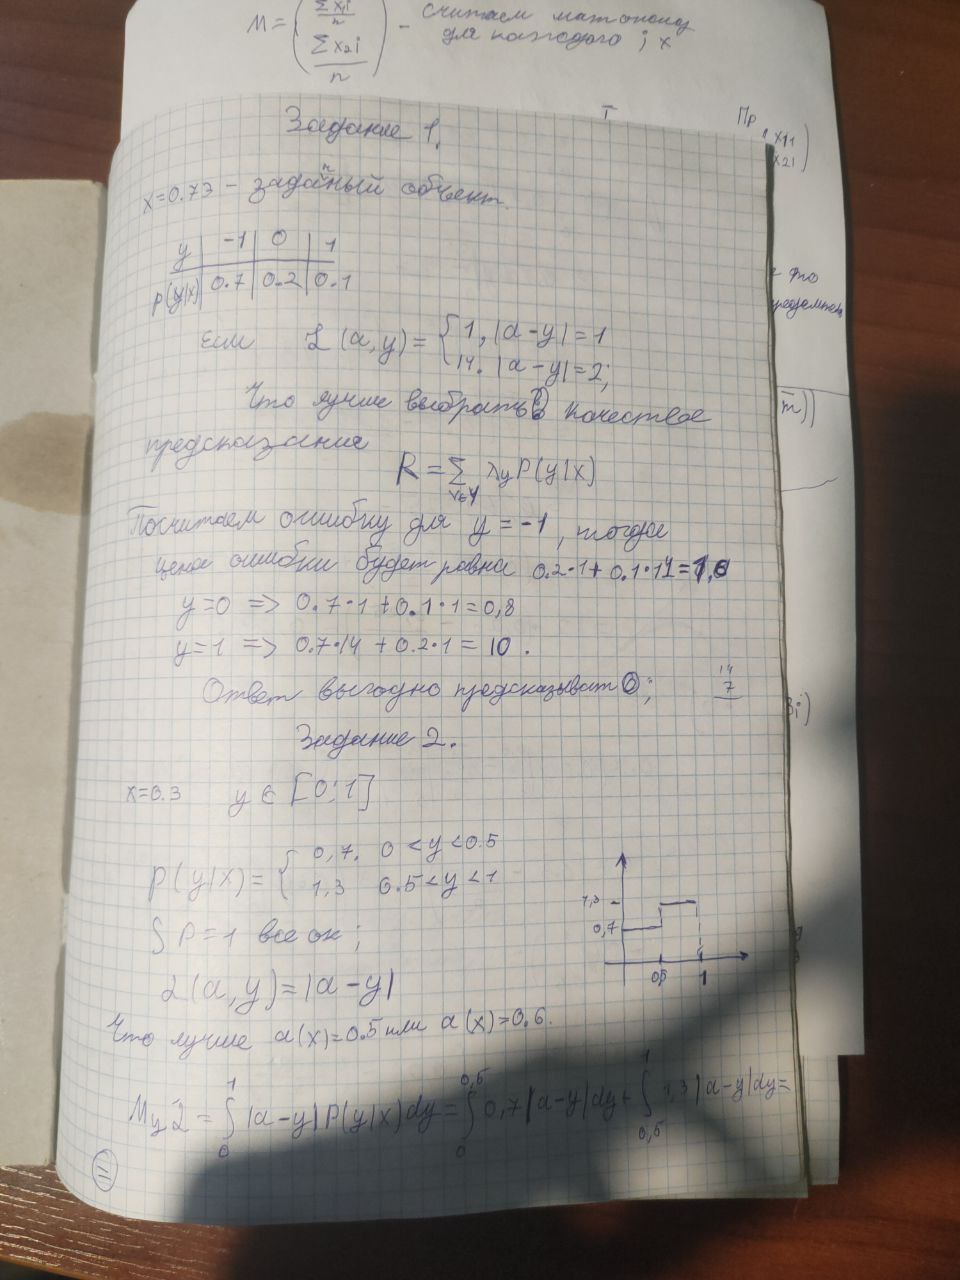 M = ( Σ x1i / n
Σ x2i / n ) - считаем матожид
для каждого i x
T
Пр
x11
x21
Задание 1.
x=0.73 - заданный объект.
y | -1 | 0 | 1
p(y|x) | 0.7 | 0.2 | 0.1
если L(a,y) = { 1, |a-y| = 1
14. |a-y| = 2;
Что лучше выбрать в качестве
предсказание
R = Σ λy P(y|x)
Посчитаем ошибку для y = -1, тогда
цена ошибки будет равна 0.2·1 + 0.1·14 = 1,6
y=0 => 0.7·1 + 0.1·1 = 0,8
y=1 => 0.7·14 + 0.2·1 = 10.
Ответ выгодно предсказыват 0;
14
7
Задание 2.
x=0.3 y ∈ [0;1]
p(y|x) = { 0,7. 0 < y < 0.5
1,3 0.5 < y < 1
1,3
0,7
0,5 1
∫ P = 1 все ок;
L(a,y) = |a-y|
Что лучше a(x)=0.5 или a(x)=0.6.
My L = ∫₀¹ |a-y| P(y|x) dy = ∫₀^0,5 0,7 |a-y| dy + ∫_0,5^1 1,3 |a-y| dy =
11